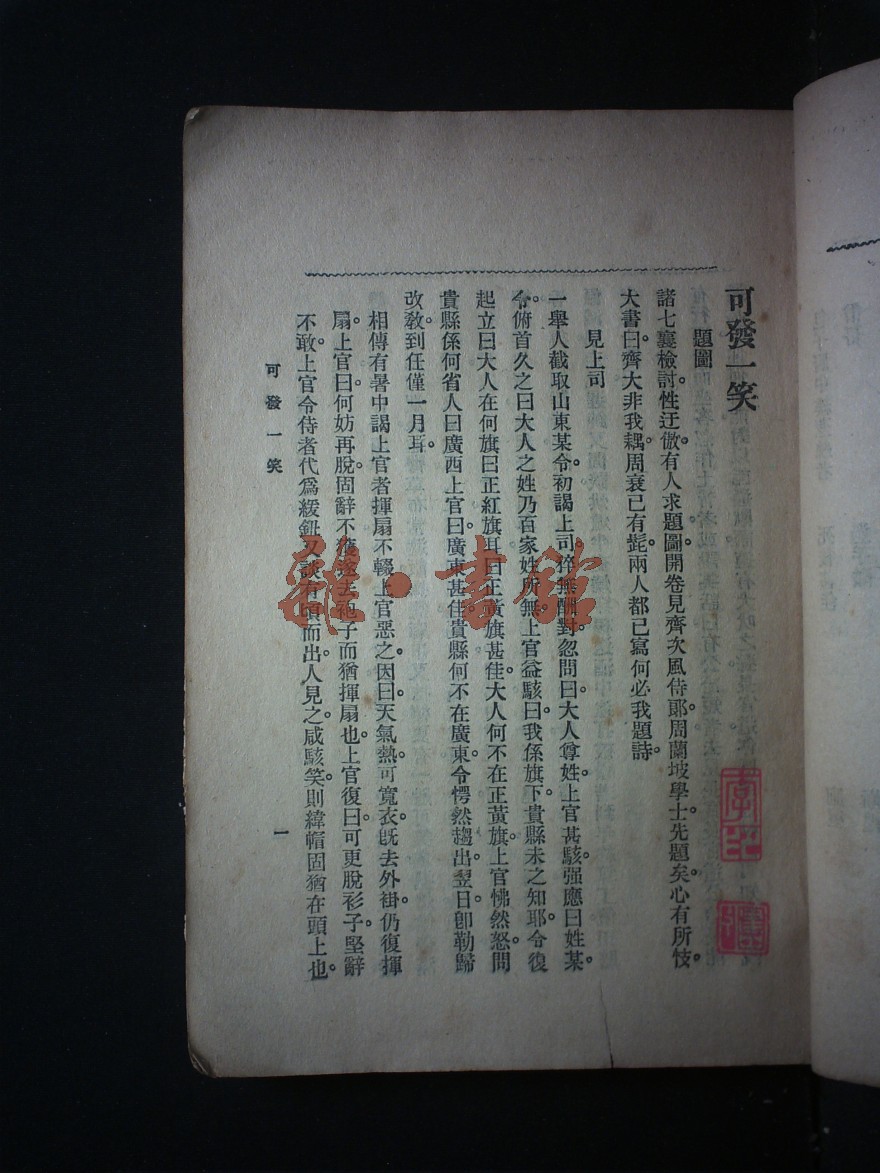 可發一笑
題圖
諸七襄檢討。性迂傲有人求題圖開卷見齊次風侍郞。周蘭坡學士先題矣。心有所忮。
大書曰。齊大非我耦。周衰已有髭。兩人都已寫。何必我題詩。
見上司
一舉人截取山東某令。初謁上司。猝無酬對。忽問曰。大人尊姓。上官甚駭。强應曰。姓某。
令俯首久之曰。大人之姓。乃百家姓所無。上官益駭曰。我係旗下。貴縣未之知耶。令復
起立曰。大人在何旗。曰正紅旗耳。曰正黃旗甚佳。大人何不在正黃旗。上官怫然怒。問
貴縣係何省人。曰廣西。上官曰。廣東甚佳。貴縣何不在廣東。令愕然趨出。翌日卽勒歸
改敎。到任僅一月耳。
相傳有暑中謁上官者。揮扇不輟。上官惡之。因曰。天氣熱。可寬衣。旣去外褂。仍復揮
扇。上官曰。何妨再脫。固辭不獲。遂去袍子。而猶揮扇也。上官復曰。可更脫衫子。堅辭
不敢。上官令侍者代爲緩鈕。又談有頃而出。人見之。咸駭笑。則緯帽固猶在頭上也。
可發一笑
一
雜·書館